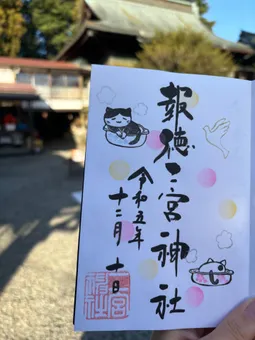 報徳二宮神社
令和五年
十二月十日